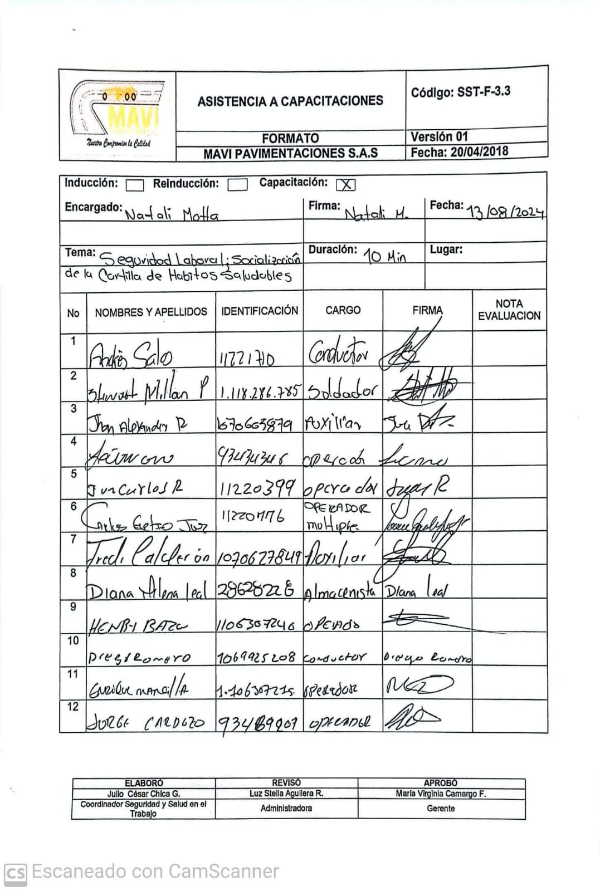 MAVI
Nuestro Compromiso la Calidad
ASISTENCIA A CAPACITACIONES
Código: SST-F-3.3
FORMATO
Versión 01
MAVI PAVIMENTACIONES S.A.S
Fecha: 20/04/2018
Inducción: Reinducción: Capacitación: X
Encargado: Natali Motta Firma: Natali M. Fecha: 13/08/2024
Tema: Seguridad Laboral; Socialización Duración: 10 Min Lugar:
de la Cartilla de Habitos Saludables
No NOMBRES Y APELLIDOS IDENTIFICACIÓN CARGO FIRMA NOTA EVALUACION
1 Andrés Conductor
2 Millan P 1.118.286.785 Soldador
3 Jhon Alexander R Auxiliar
4
5 Juan Carlos R 11220399 operador Juan R
6 Carlos OPERADOR multiple
7 Fredi Calderón 1070627849 Auxiliar
8 Diana Leal 28628228 Almacenista Diana leal
9 HENRI 1106307246
10 Diego Romero 1069925208 conductor Diego Romero
11 Enrique 1.106307215 operador
12 JORGE CARDOZO operador
ELABORO REVISÓ APROBÓ
Julio César Chica G. Luz Stella Aguilera R. Maria Virginia Camargo F.
Coordinador Seguridad y Salud en el Trabajo Administradora Gerente
CS Escaneado con CamScanner